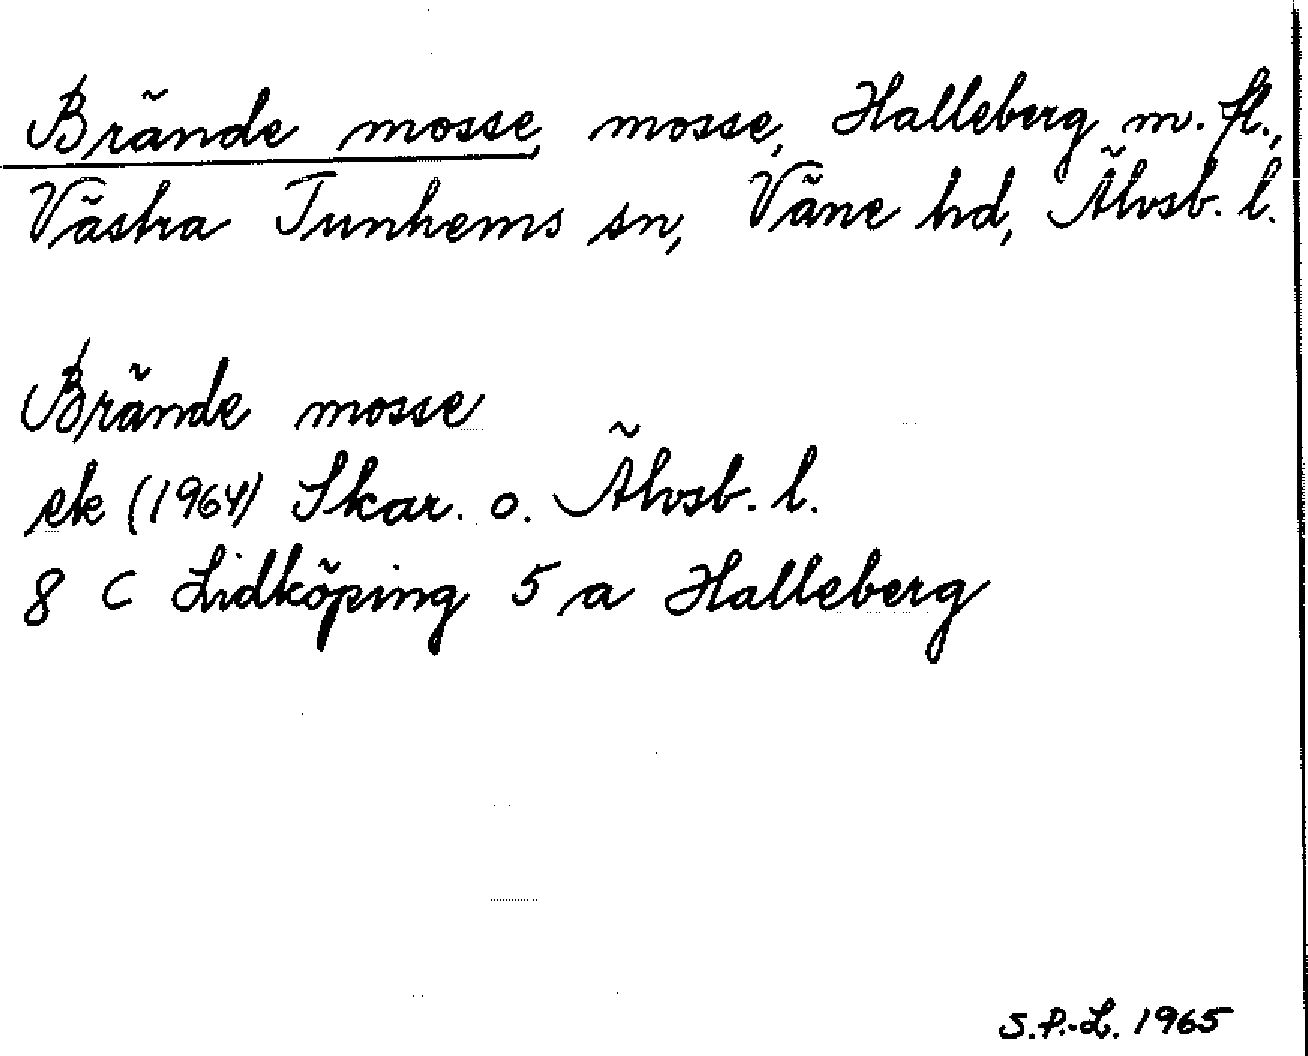 Brände mosse, mosse, Halleberg m. fl.,
Västra Tunhems sn, Väne hd, Älvsb. l.
Brände mosse
ek (1964) Skar. o. Älvsb. l.
8 C Lidköping 5 a Halleberg
S.P.-L. 1965